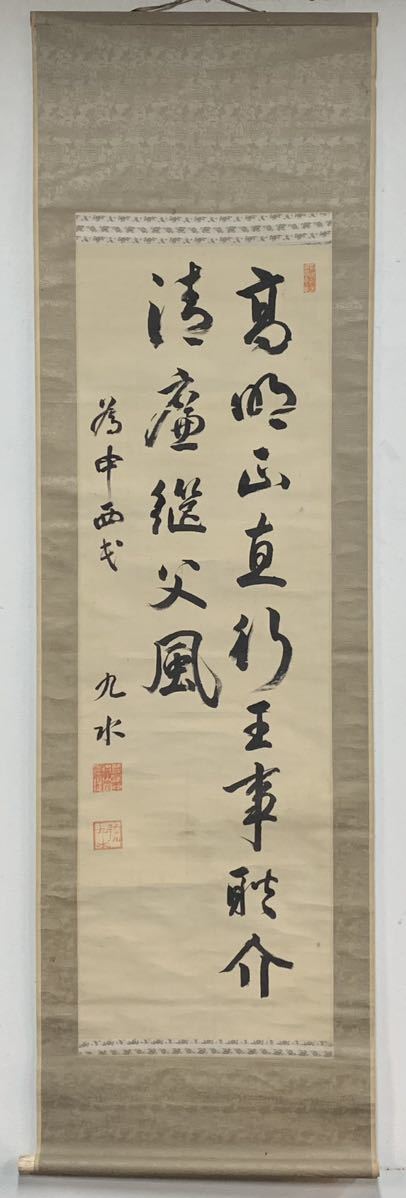 高明正直行王事耿介
清廉継父風
為中西氏
九水